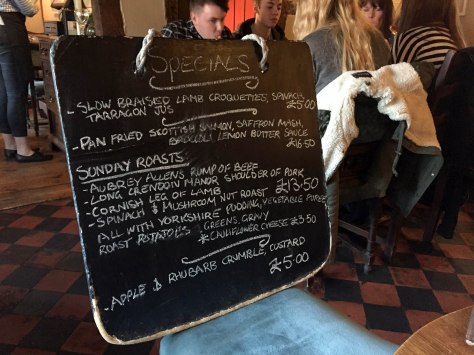 SPECIALS
- SLOW BRAISED LAMB CROQUETTES, SPINACH,
TARRAGON JUS £5.00
- PAN FRIED SCOTTISH SALMON, SAFFRON MASH,
BROCCOLI, LEMON BUTTER SAUCE
£16.50
SUNDAY ROASTS
- AUBREY ALLENS RUMP OF BEEF
- LONG CRENDON MANOR SHOULDER OF PORK
- CORNISH LEG OF LAMB £13.50
- SPINACH & MUSHROOM NUT ROAST
ALL WITH YORKSHIRE PUDDING, VEGETABLE PUREE
ROAST POTATOES, GREENS, GRAVY
* CAULIFLOWER CHEESE £3.50
- APPLE & RHUBARB CRUMBLE, CUSTARD
£5.00